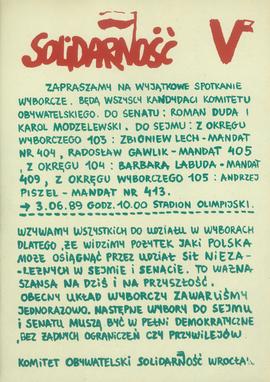 SOLIDARNOŚĆ V
ZAPRASZAMY NA WYJĄTKOWE SPOTKANIE
WYBORCZE. BĘDĄ WSZYSCY KANDYDACI KOMITETU
OBYWATELSKIEGO. DO SENATU: ROMAN DUDA I
KAROL MODZELEWSKI. DO SEJMU: Z OKRĘGU
WYBORCZEGO 103: ZBIGNIEW LECH - MANDAT
NR 404, RADOSŁAW GAWLIK - MANDAT 405
, Z OKRĘGU 104: BARBARA LABUDA - MANDAT
409, Z OKRĘGU WYBORCZEGO 105: ANDRZEJ
PISZEL - MANDAT NR 413.
→ 3.06.89 GODZ. 10.00 STADION OLIMPIJSKI.
WZYWAMY WSZYSTKICH DO UDZIAŁU W WYBORACH
DLATEGO, ŻE WIDZIMY POŻYTEK JAKI POLSKA
MOŻE OSIĄGNĄĆ PRZEZ UDZIAŁ SIŁ NIEZA-
LEŻNYCH W SEJMIE I SENACIE. TO WAŻNA
SZANSA NA DZIŚ I NA PRZYSZŁOŚĆ.
OBECNY UKŁAD WYBORCZY ZAWARLIŚMY
JEDNORAZOWO. NASTĘPNE WYBORY DO SEJMU
I SENATU MUSZĄ BYĆ W PEŁNI DEMOKRATYCZNE
, BEZ ŻADNYCH OGRANICZEŃ CZY PRZYWILEJÓW.
KOMITET OBYWATELSKI SOLIDARNOŚĆ WROCŁAW.